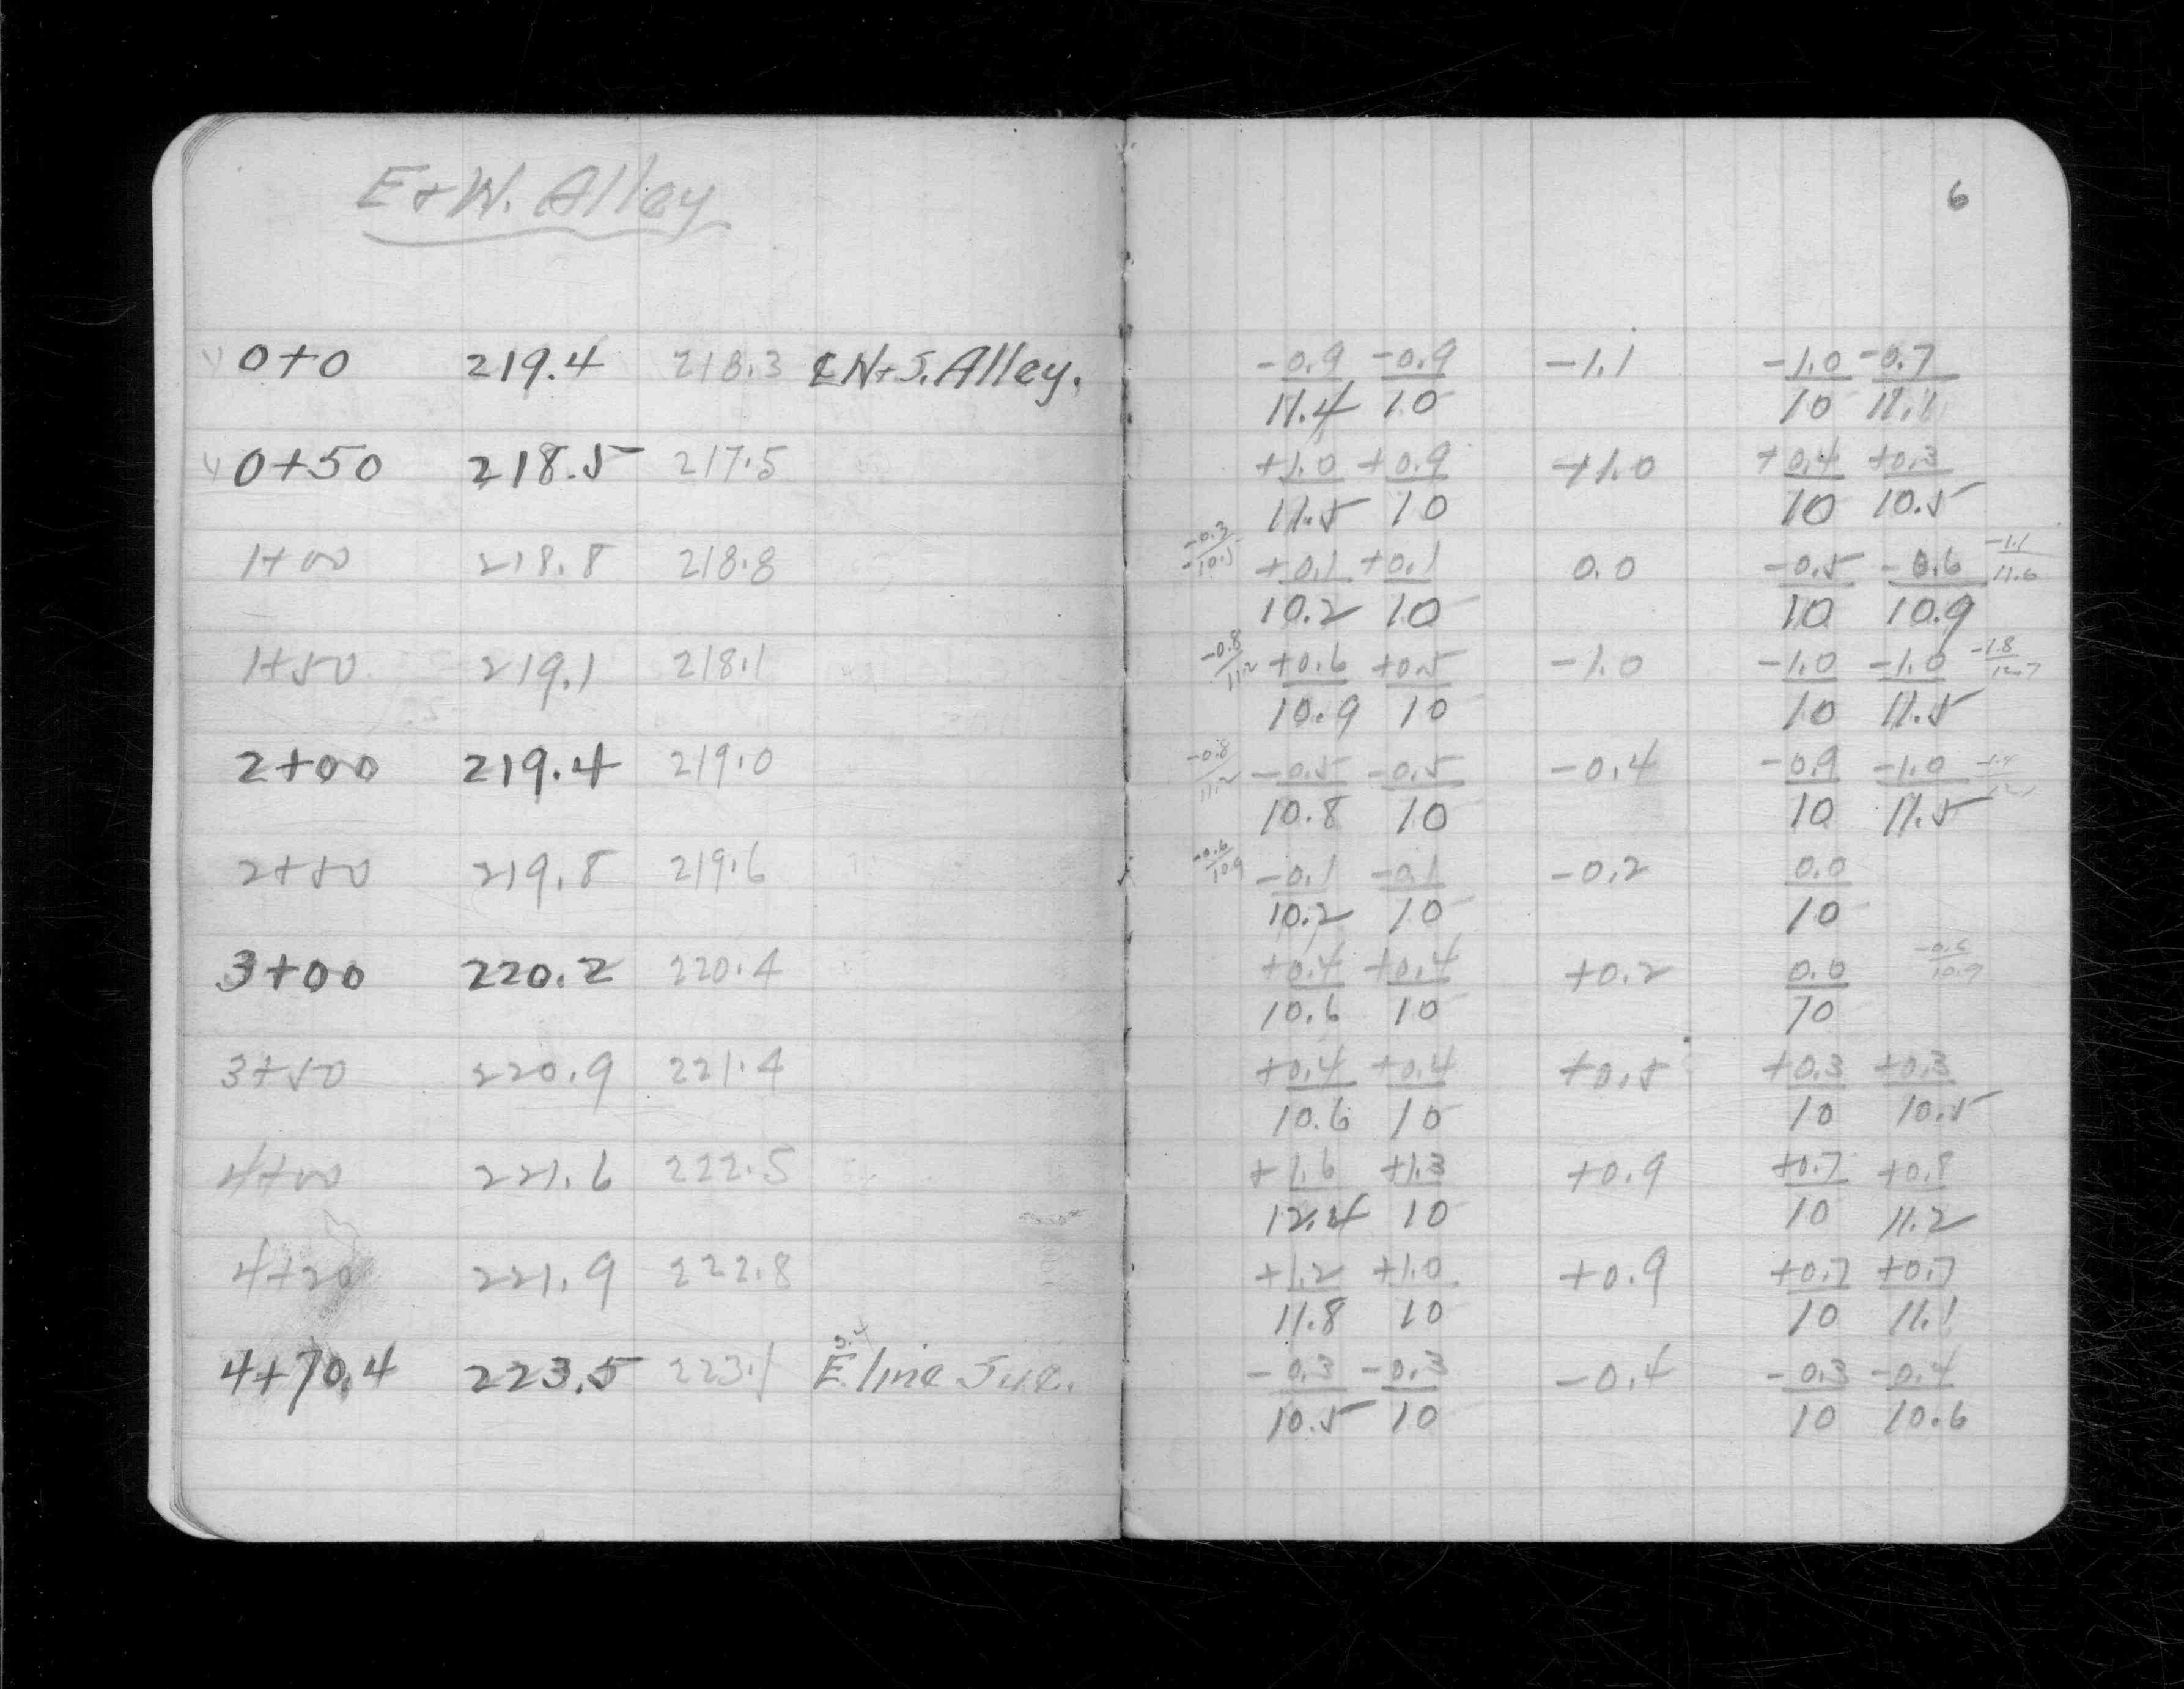 E+W. Alley
6
0+0 219.4 218.3 ℄ N+S. Alley. -0.9/11.4 -0.9/10 -1.1 -1.0/10 -0.7/11.1
0+50 218.5 217.5 +1.0/11.5 +0.9/10 +1.0 +0.4/10 +0.3/10.5
1+00 218.8 218.8 -0.3/10.5 +0.1/10.2 +0.1/10 0.0 -0.5/10 -0.6/10.9 -1.1/11.6
1+50 219.1 218.1 -0.8/11.2 +0.6/10.9 +0.5/10 -1.0 -1.0/10 -1.0/11.5 -1.8/12.7
2+00 219.4 219.0 -0.8/11.2 -0.5/10.8 -0.5/10 -0.4 -0.9/10 -1.0/11.5
2+50 219.8 219.6 -0.6/10.9 -0.1/10.2 -0.1/10 -0.2 0.0/10
3+00 220.2 220.4 +0.4/10.6 +0.4/10 +0.2 0.0/10 -0.6/10.9
3+50 220.9 221.4 +0.4/10.6 +0.4/10 +0.5 +0.3/10 +0.3/10.5
4+00 221.6 222.5 +1.6/12.4 +1.3/10 +0.9 +0.7/10 +0.8/11.2
4+20 221.9 222.8 +1.2/11.8 +1.0/10 +0.9 +0.7/10 +0.7/11.1
4+70.4 223.5 223.1 E. line -0.3/10.5 -0.3/10 -0.4 -0.3/10 -0.4/10.6